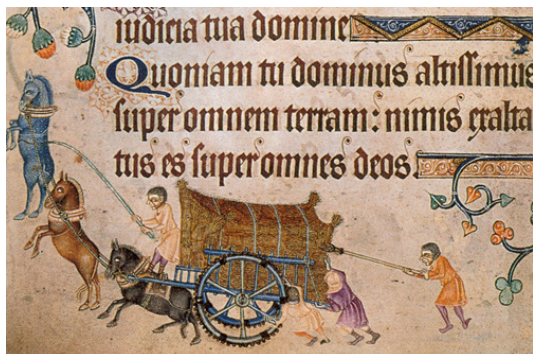 iudicia tua domine
Quoniam tu dominus altissimus
super omnem terram: nimis exalta
tus es super omnes deos.